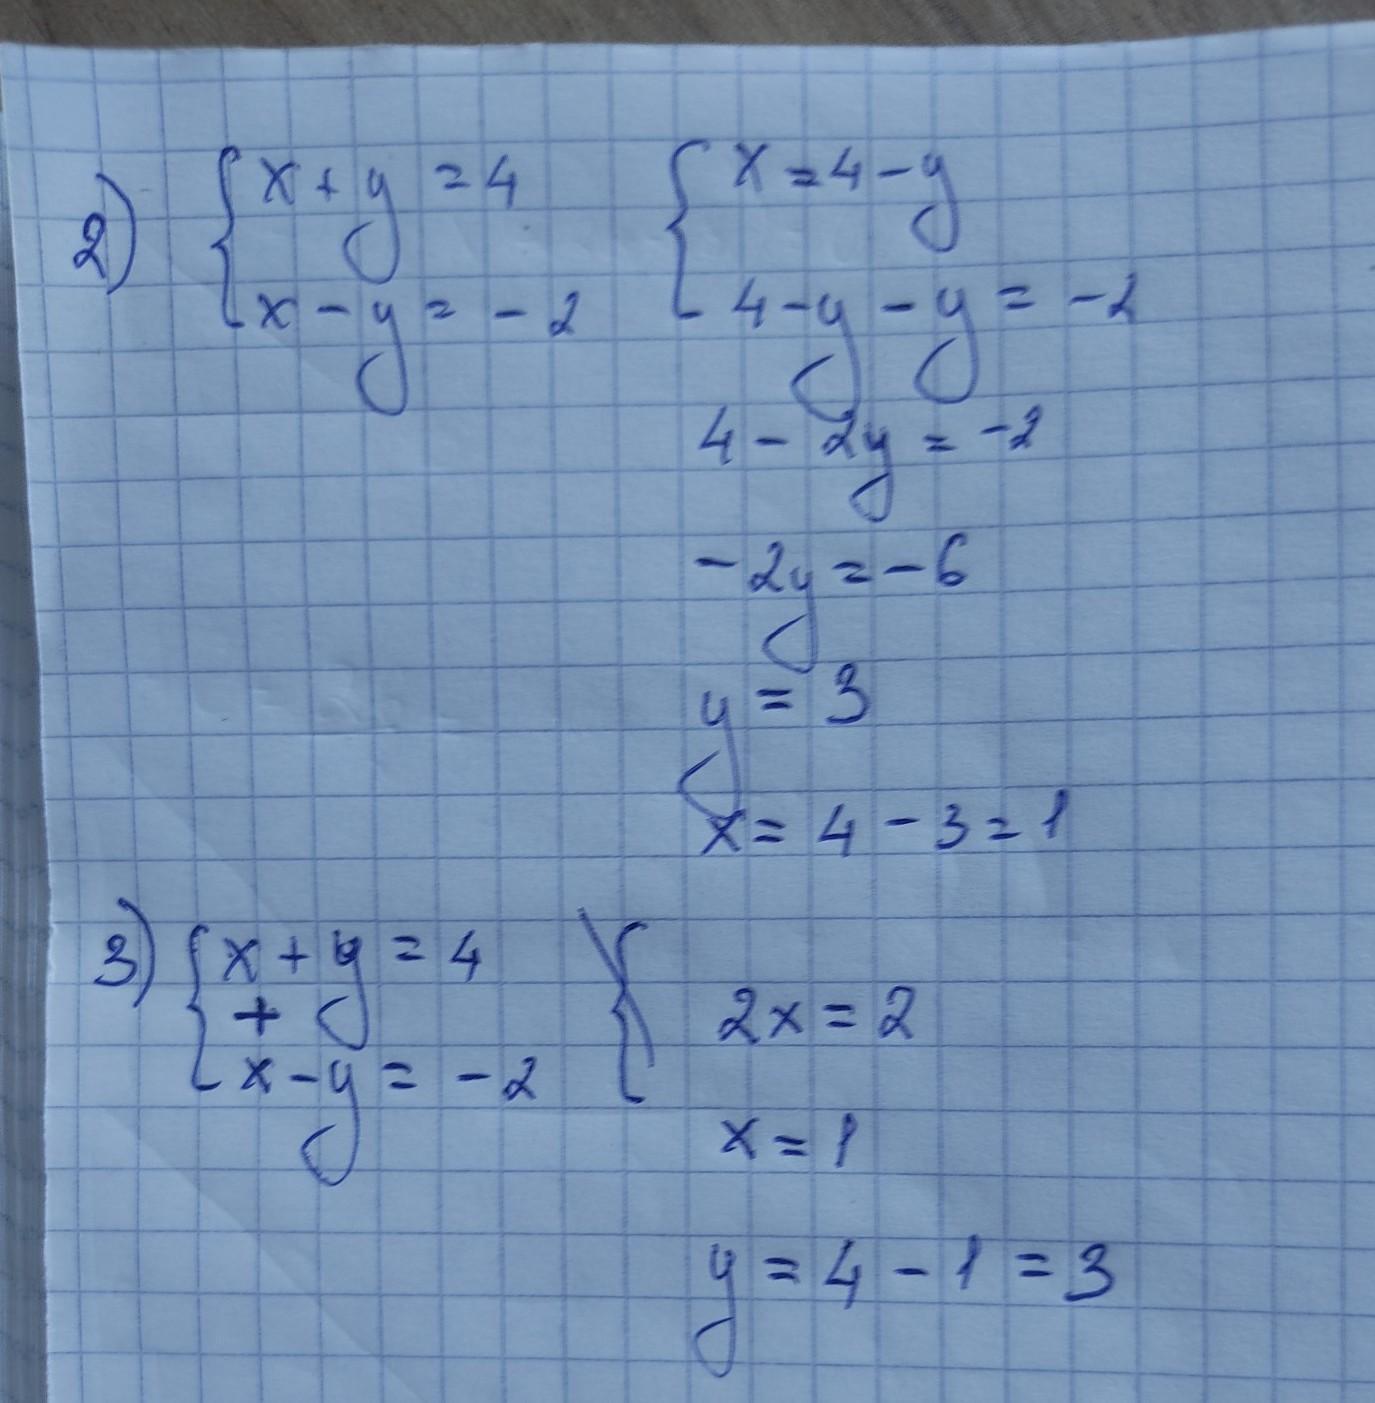 2) { x + y = 4 { x = 4 - y
x - y = - 2 4 - y - y = - 2
4 - 2y = - 2
- 2y = - 6
y = 3
x = 4 - 3 = 1
3) { x + y = 4
+ 2x = 2
x - y = - 2
x = 1
y = 4 - 1 = 3